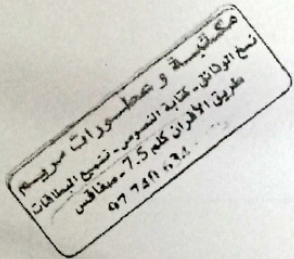 مكتبة و عطورات مريم
نسخ الوثائق - كتابة النصوص - تلميع البطاقات
طريق الأفران كلم 7.5 - صفاقس